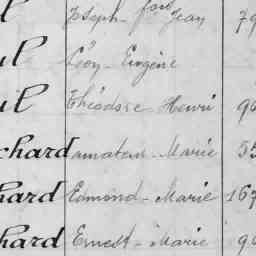 Joseph Jean 79
Léon - Eugène
Théodore - Henri
chard amateur - Marie 55
hard Edmond - Marie 167
hard Ernest - Marie